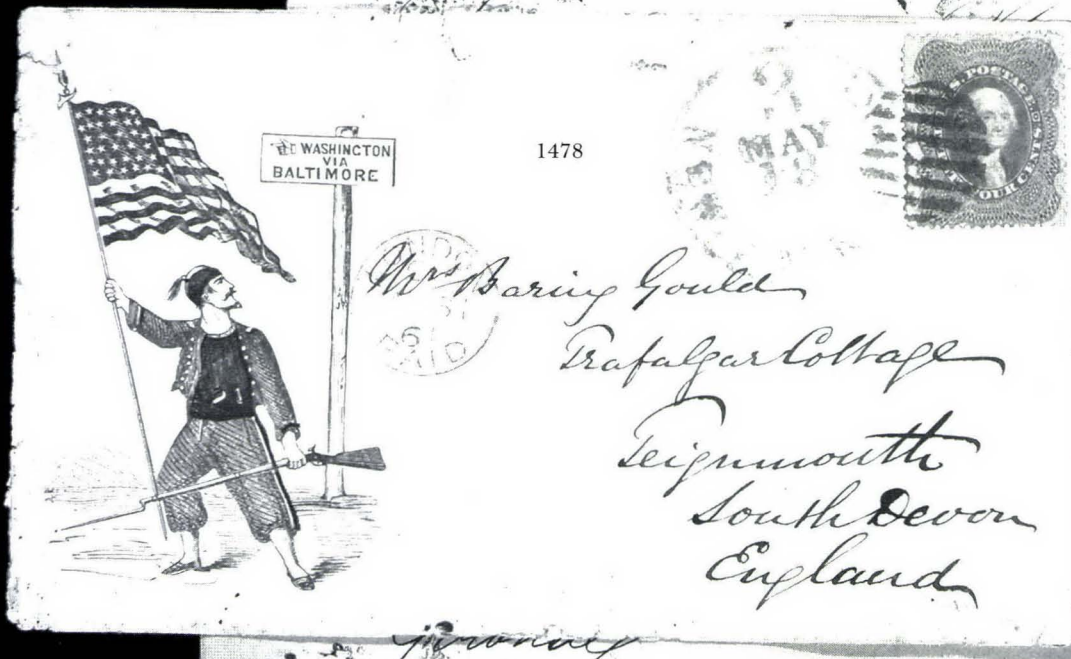 TO WASHINGTON
VIA
BALTIMORE
1478
MAY
U.S. POSTAGE
Mrs Baring Gould
Trafalgar Cottage
Teignmouth
South Devon
England
PAID